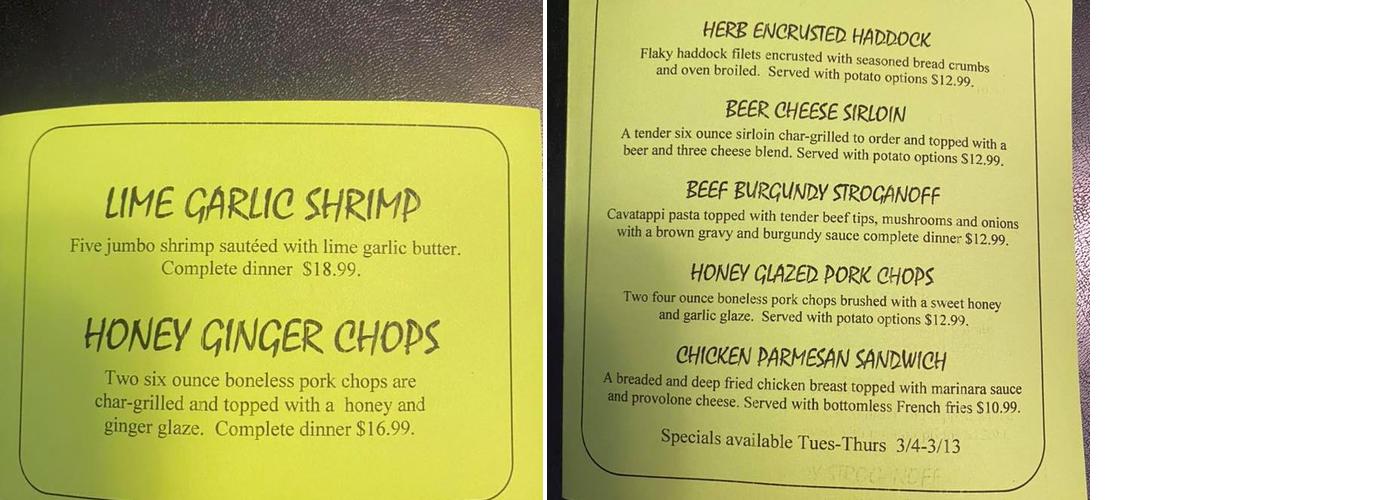 LIME GARLIC SHRIMP
Five jumbo shrimp sautéed with lime garlic butter.
Complete dinner $18.99.
HONEY GINGER CHOPS
Two six ounce boneless pork chops are
char-grilled and topped with a honey and
ginger glaze. Complete dinner $16.99.
HERB ENCRUSTED HADDOCK
Flaky haddock filets encrusted with seasoned bread crumbs
and oven broiled. Served with potato options $12.99.
BEER CHEESE SIRLOIN
A tender six ounce sirloin char-grilled to order and topped with a
beer and three cheese blend. Served with potato options $12.99.
BEEF BURGUNDY STROGANOFF
Cavatappi pasta topped with tender beef tips, mushrooms and onions
with a brown gravy and burgundy sauce complete dinner $12.99.
HONEY GLAZED PORK CHOPS
Two four ounce boneless pork chops brushed with a sweet honey
and garlic glaze. Served with potato options $12.99.
CHICKEN PARMESAN SANDWICH
A breaded and deep fried chicken breast topped with marinara sauce
and provolone cheese. Served with bottomless French fries $10.99.
Specials available Tues-Thurs 3/4-3/13